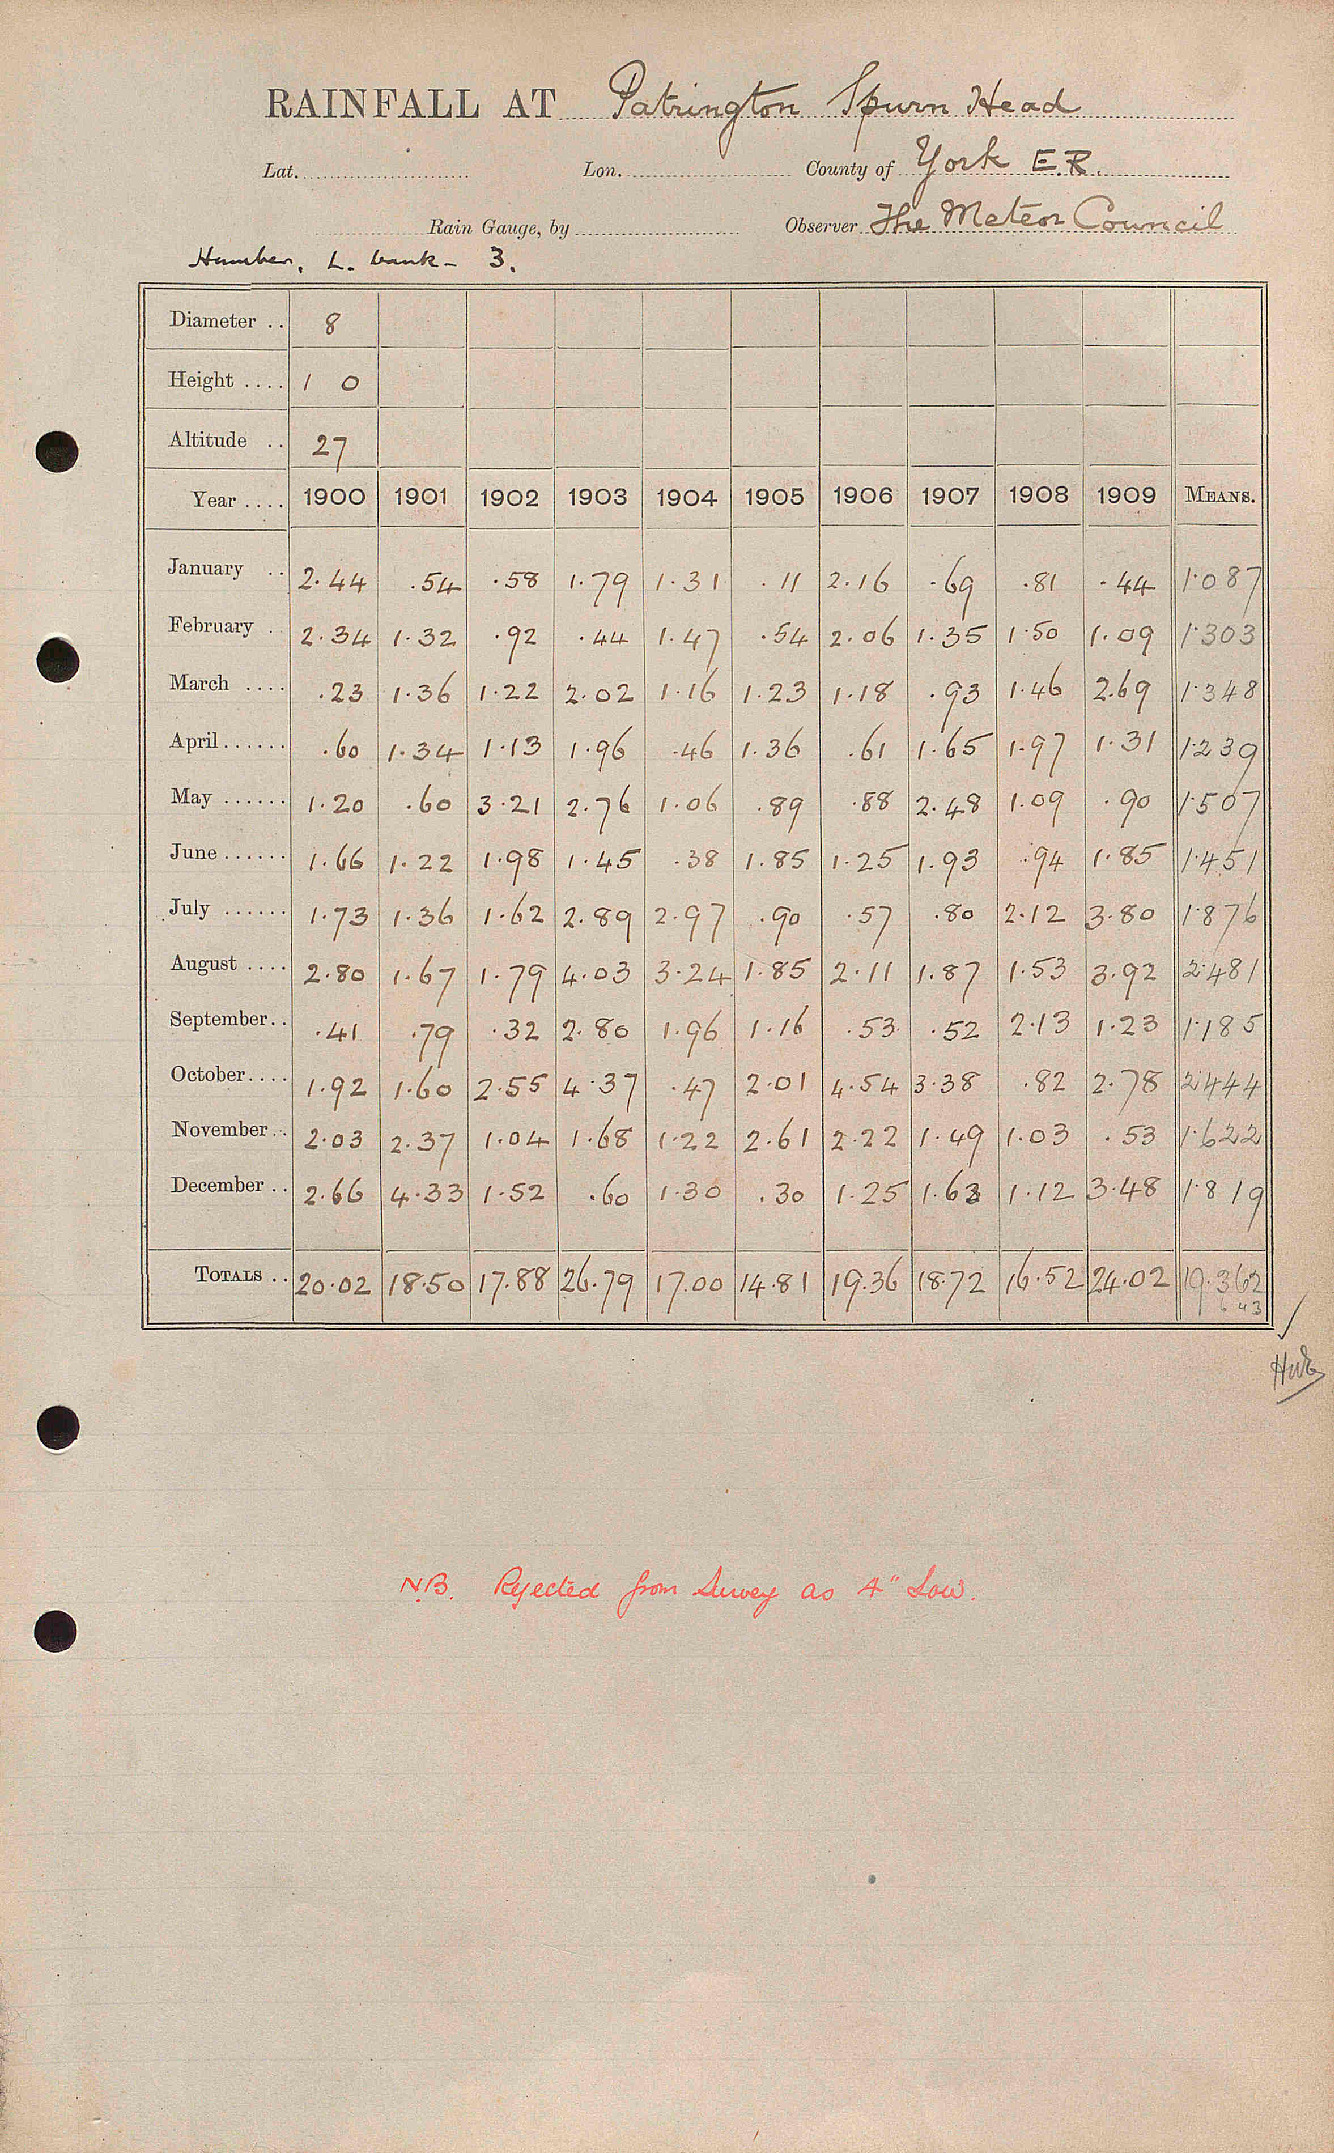 RAINFALL AT Patrington Spurn Head
Lat. Lon. County of York E.R.
Rain Gauge, by Observer The Meteor Council
Humber, L. bank - 3.
Diameter .. 8
Height .... 1 0
Altitude .. 27
Year .... 1900 1901 1902 1903 1904 1905 1906 1907 1908 1909 MEANS.
January .. 2.44 .54 .58 1.79 1.31 .11 2.16 .69 .81 .44 1.087
February .. 2.34 1.32 .92 .44 1.47 .54 2.06 1.35 1.50 1.09 1.303
March .... .23 1.36 1.22 2.02 1.16 1.23 1.18 .93 1.46 2.69 1.348
April...... .60 1.34 1.13 1.96 .46 1.36 .61 1.65 1.97 1.31 1.239
May ...... 1.20 .60 3.21 2.76 1.06 .89 .88 2.48 1.09 .90 1.507
June ...... 1.66 1.22 1.98 1.45 .38 1.85 1.25 1.93 .94 1.85 1.451
July ...... 1.73 1.36 1.62 2.89 2.97 .90 .57 .80 2.12 3.80 1.876
August .... 2.80 1.67 1.79 4.03 3.24 1.85 2.11 1.87 1.53 3.92 2.481
September.. .41 .79 .32 2.80 1.96 1.16 .53 .52 2.13 1.23 1.185
October.... 1.92 1.60 2.55 4.37 .47 2.01 4.54 3.38 .82 2.78 2.444
November .. 2.03 2.37 1.04 1.68 1.22 2.61 2.22 1.49 1.03 .53 1.622
December .. 2.66 4.33 1.52 .60 1.30 .30 1.25 1.63 1.12 3.48 1.819
TOTALS .. 20.02 18.50 17.88 26.79 17.00 14.81 19.36 18.72 16.52 24.02 19.362
N.B. Rejected from Survey as 4" Low.